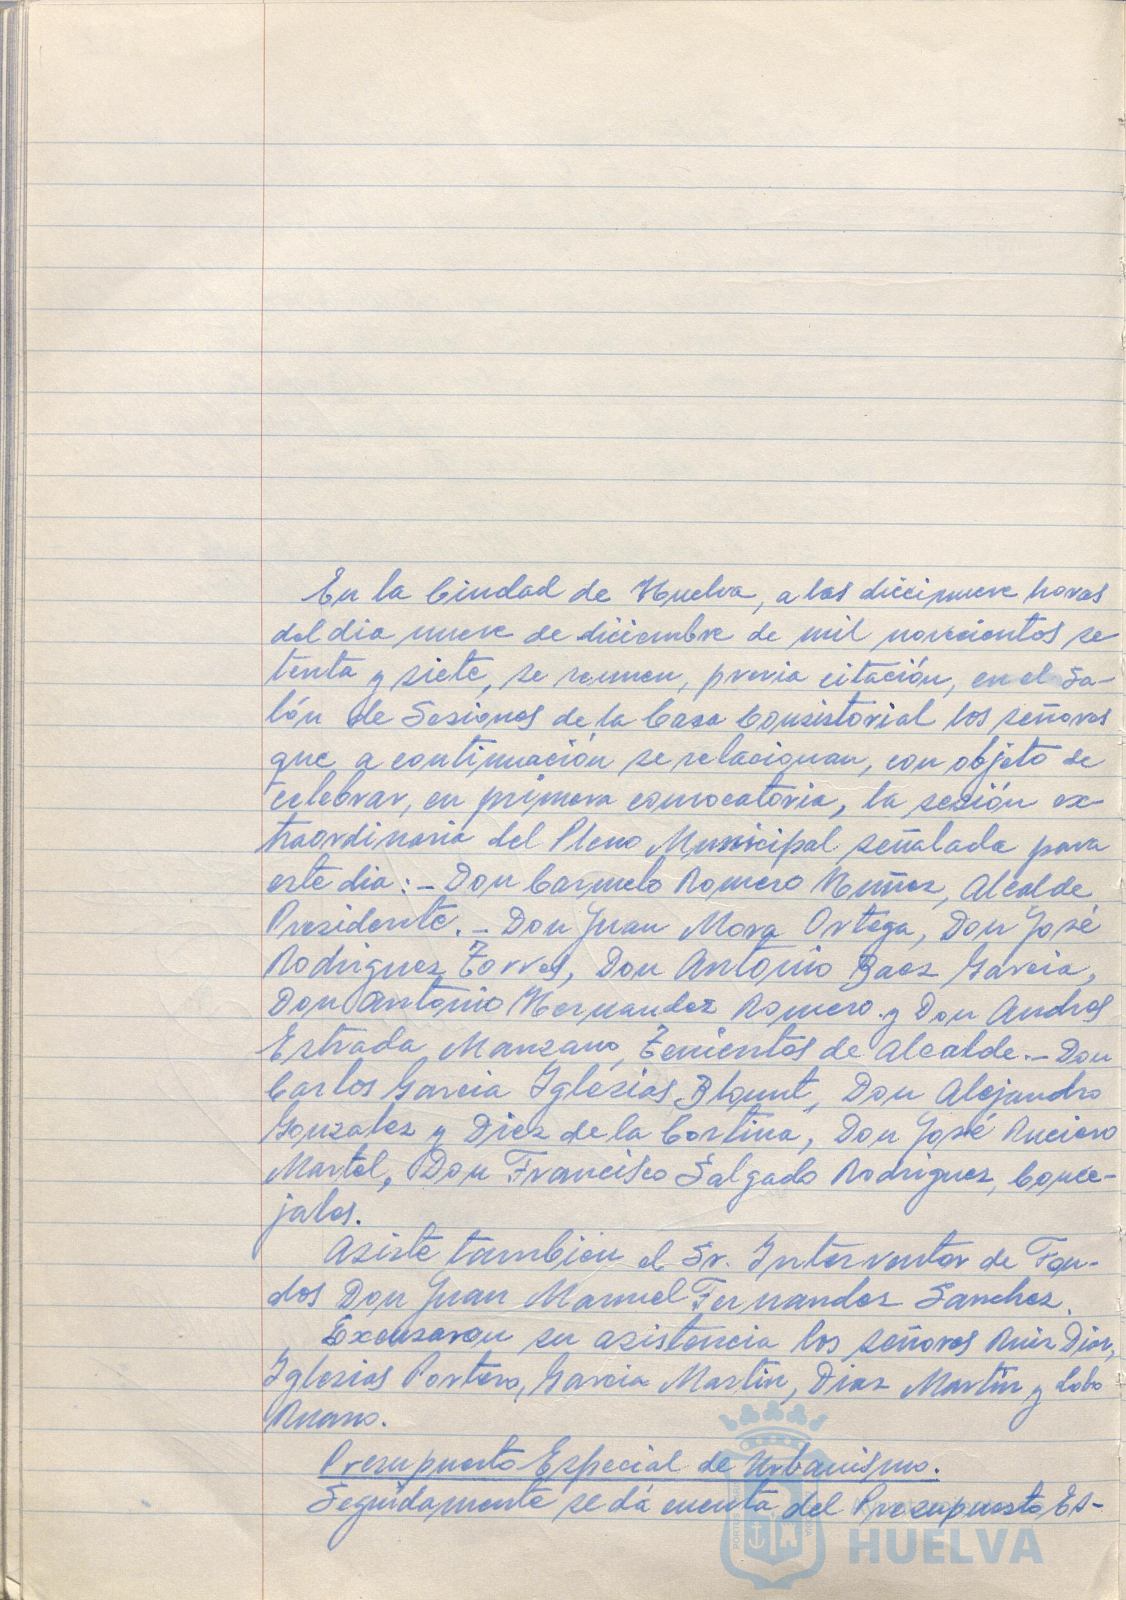 En la Ciudad de Huelva, a las diecinueve horas
del dia nueve de diciembre de mil novecientos se
tenta y siete, se reunen, previa citación, en el Sa-
lón de Sesiones de la Casa Consistorial los señores
que a continuación se relacionan, con objeto de
celebrar, en primera convocatoria, la sesión ex-
traordinaria del Pleno Municipal señalada para
este dia: - Don Carmelo Romero Muñoz, Alcalde
Presidente. - Don Juan Mora Ortega, Don José
Rodriguez Torres, Don Antonio Baez Garcia,
Don Antonio Hernandez Romero y Don Andres
Estrada Manzano, Tenientes de Alcalde. - Don
Carlos Garcia Iglesias Blount, Don Alejandro
Gonzalez y Diez de la Cortina, Don José Ruciero
Martel, Don Francisco Salgado Rodriguez, Conce-
jales.
Asiste tambien el Sr. Interventor de Fon-
dos Don Juan Manuel Fernandez Sanchez.
Excusaron su asistencia los señores Ruiz Diaz,
Iglesias Portero, Garcia Martin, Diaz Martin y Lobo
Ruano.
Presupuesto Especial de Urbanismo.
Seguidamente se dá cuenta del Presupuesto Es-
HUELVA